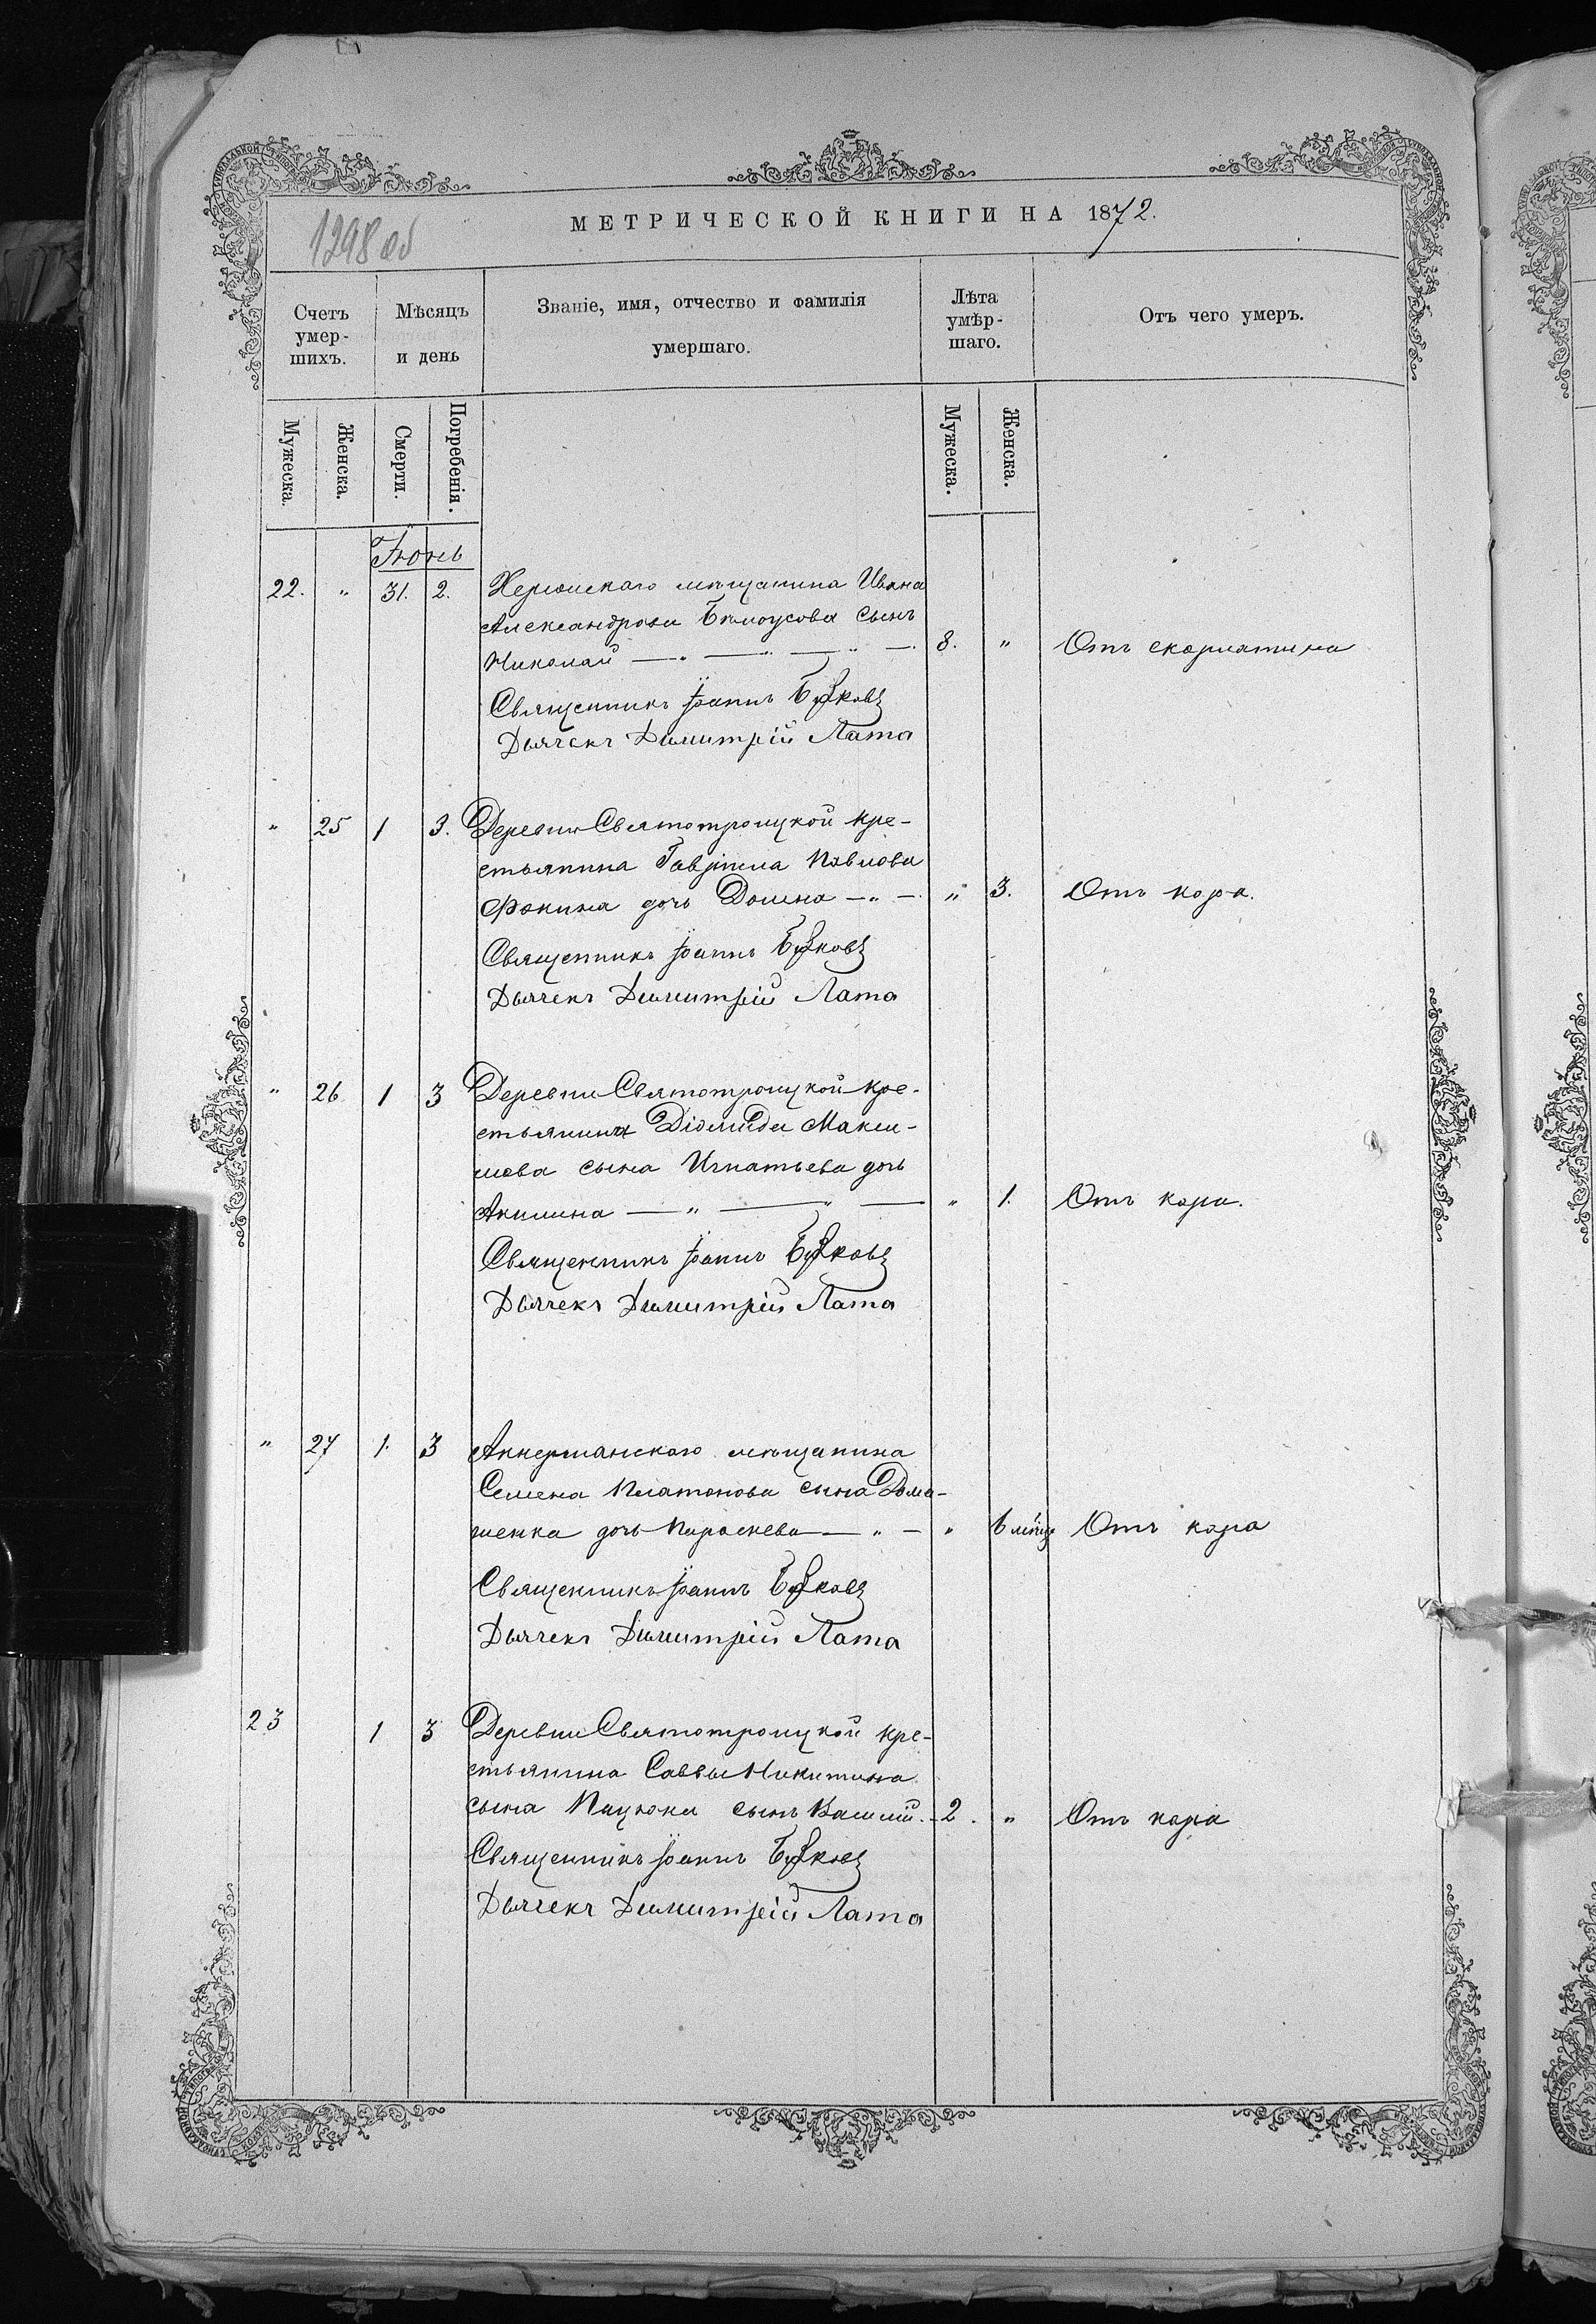 1298 об
МЕТРИЧЕСКОЙ КНИГИ НА 1872.
Счетъ умер-шихъ.
Мѣсяцъ и день
Званіе, имя, отчество и фамилія умершаго.
Лѣта умѣр-шаго.
Отъ чего умеръ.
Мужеска. Женска. Смерти. Погребенія. Мужеска. Женска.
Іюнь
22. " 31. 2. Херсонскаго мѣщанина Ивана
Александрова Бѣлоусова сынъ
Николай — " — — " — 8. " Отъ скарлатина
Священникъ Іоаннъ
Дьячекъ Димитрій Лата
" 25 1 3. Деревни Святотроицкой кре-
стьянина Гавріила Павлова
Фокина дочь Домна — " — " 3. Отъ кора.
Священникъ Іоаннъ
Дьячекъ Димитрій Лата
" 26 1 3 Деревни Святотроицкой кре-
стьянина Діомида Макси-
мова сына Игнатьева дочь
Акилина — " — " — " 1. Отъ кора.
Священникъ Іоаннъ
Дьячекъ Димитрій Лата
" 27 1. 3 Аккерманскаго мѣщанина
Семена Платонова сына Дома-
шенка дочь Параскева — " — " 6 мѣсяц Отъ кора
Священникъ Іоаннъ
Дьячекъ Димитрій Лата
23 1 3 Деревни Святотроицкой кре-
стьянина Саввы Никитина
сына Пацюка сынъ Василій. 2. " Отъ кора
Священникъ Іоаннъ
Дьячекъ Димитрій Лата